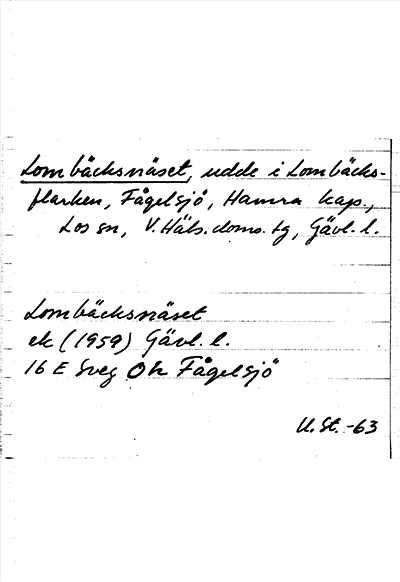 Lombäcksnäset, udde i Lombäcks-
flarken, Fågelsjö, Hamra kap.,
Los sn, V. Häls. doms. tg, Gävl. l.
Lombäcksnäset
ek (1959) Gävl. l.
16 E Sveg Oh Fågelsjö
U. St. -63